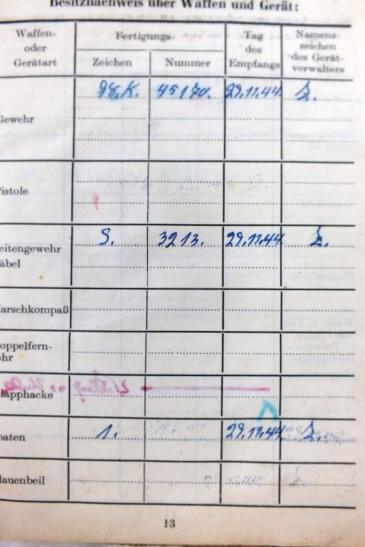 Besitznachweis über Waffen und Gerät:
Waffen- oder Gerätart
Fertigungs-
Zeichen
Nummer
Tag des Empfangs
Namens- zeichen des Gerät- verwalters
Gewehr 45170. 29.11.44 Z.
Pistole
eitengewehr S. 3213. 29.11.44 Z.
äbel
Marschkompaß
oppelfern-
ohr
lapphacke
paten 1. 29.11.44 Z.
lauenbeil
13